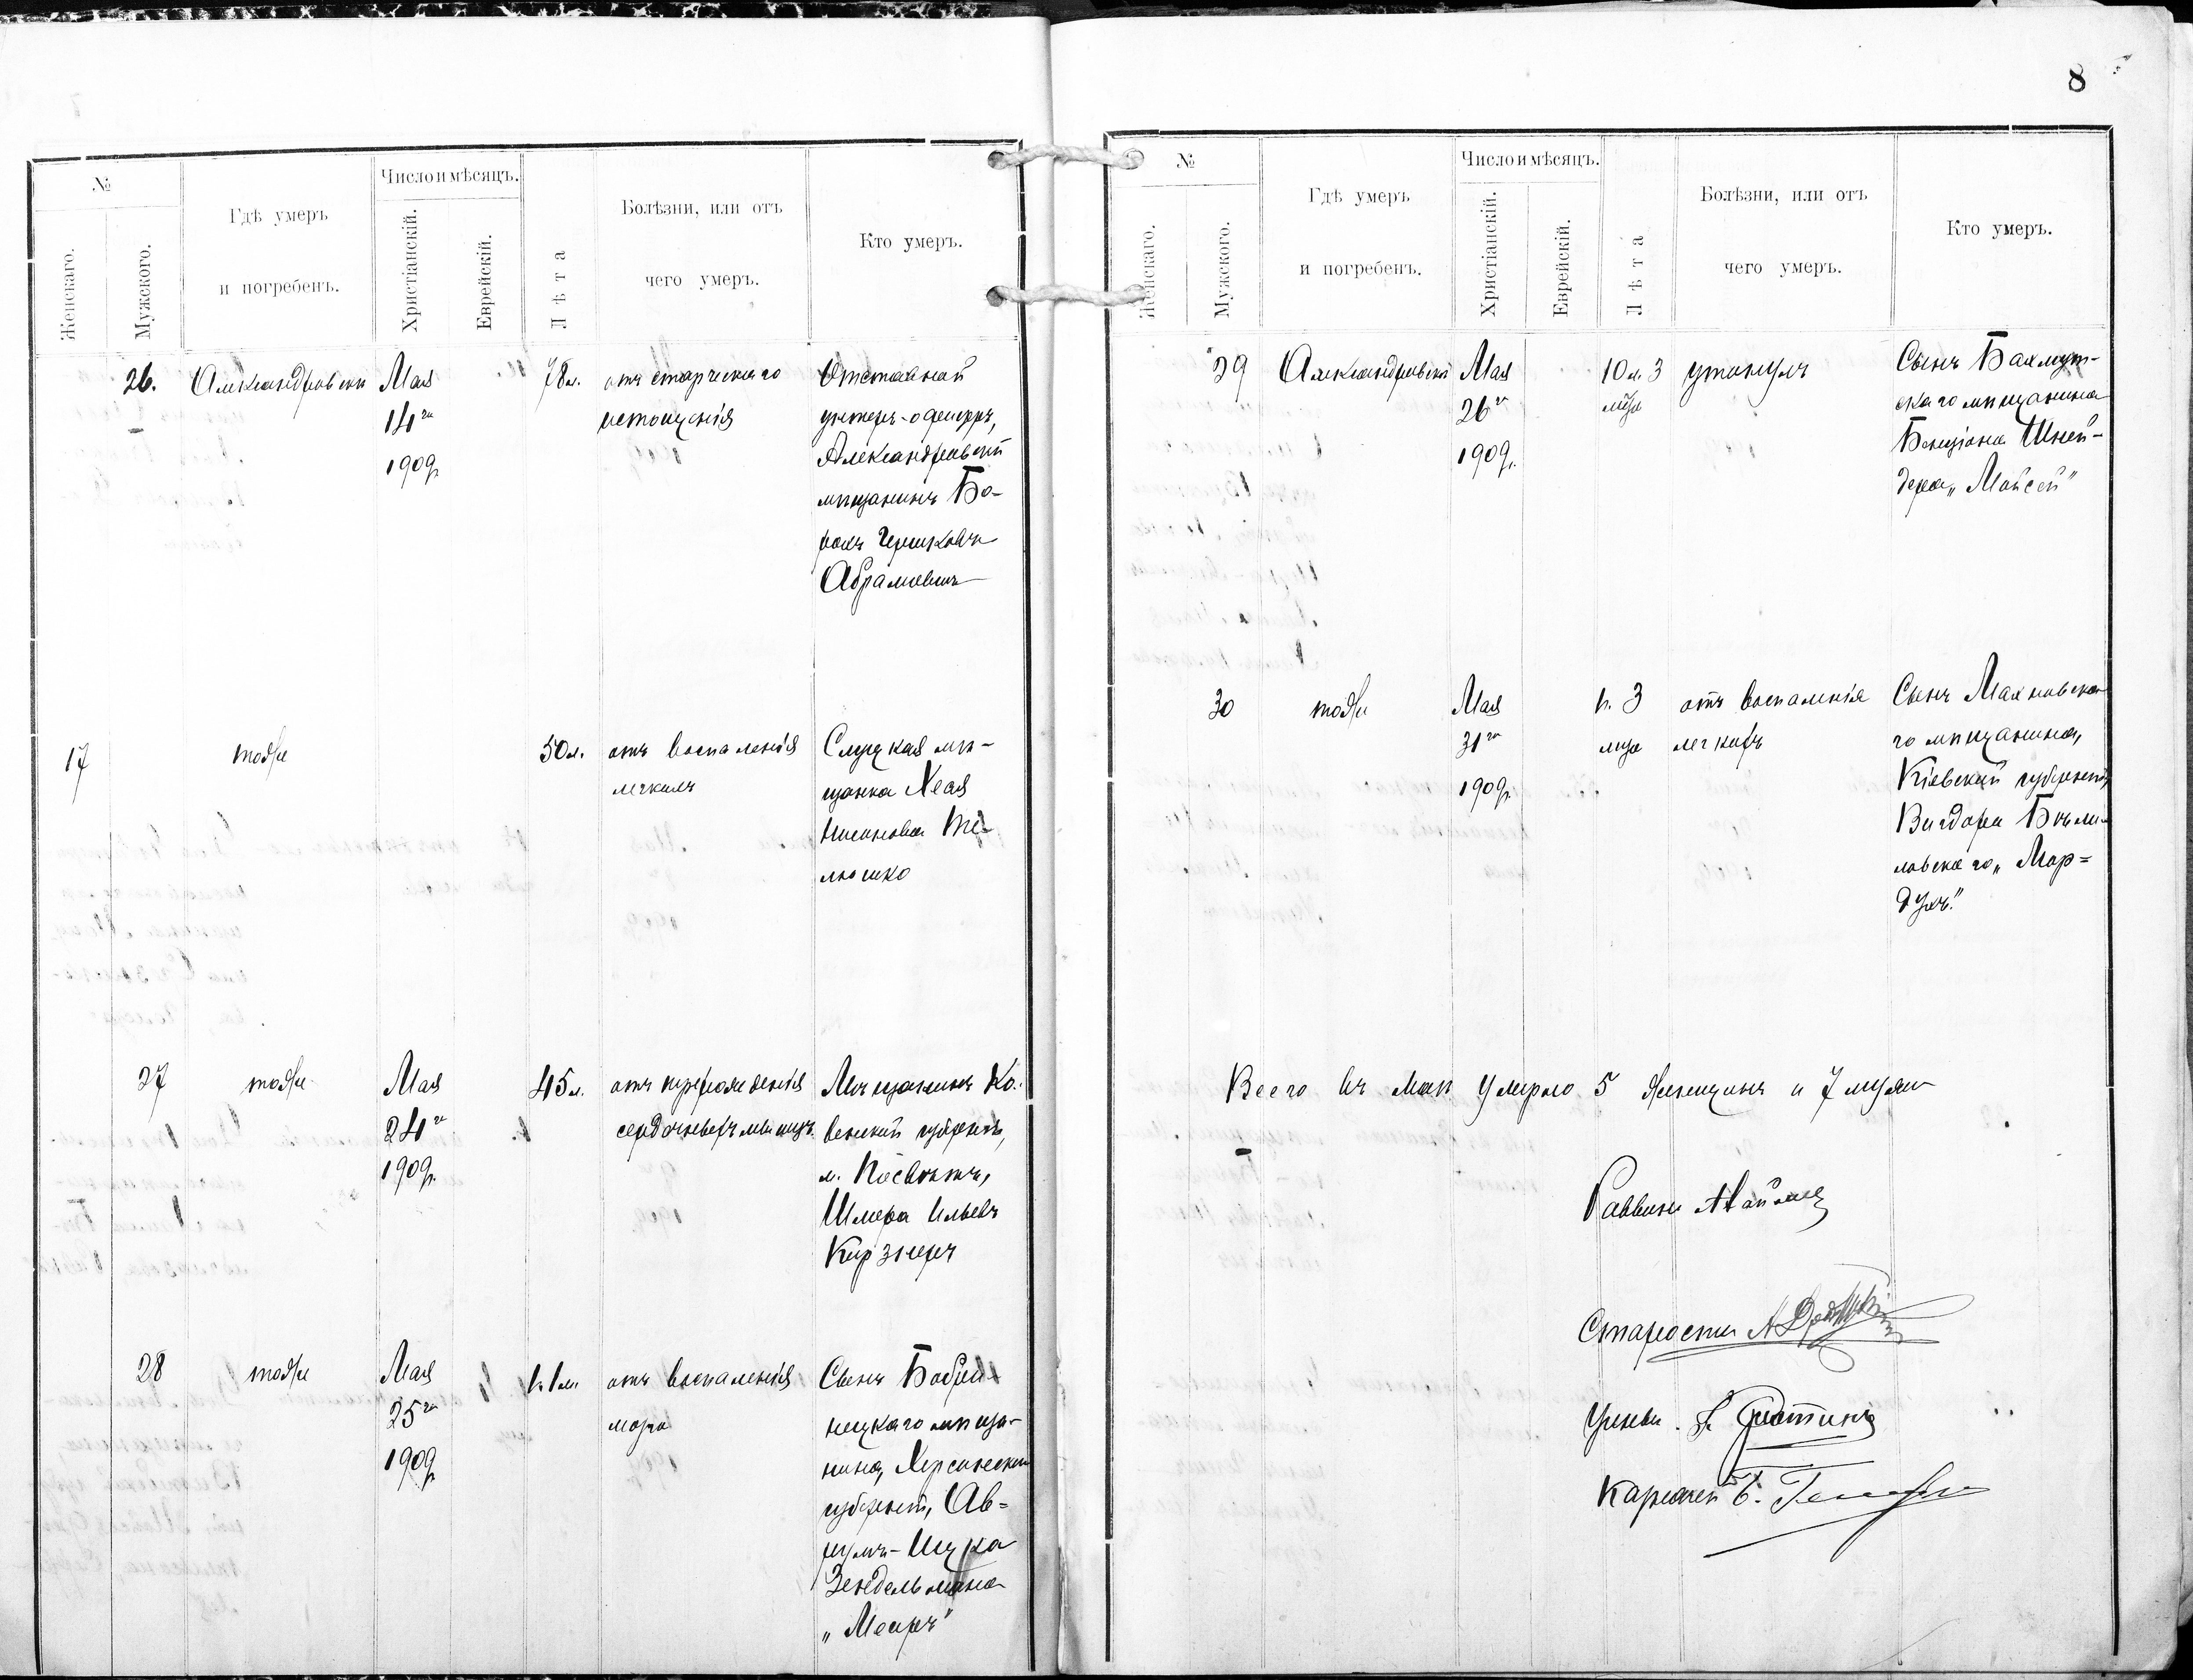 8
№
Женскаго.
Мужского.
Гдѣ умеръ
и погребенъ.
Число и мѣсяцъ.
Христіанскій.
Еврейскій.
Лѣта
Болѣзни, или отъ
чего умеръ.
Кто умеръ.
26.
Александровскъ
Мая
14го
1909г.
78 л.
отъ старческаго
истощенія
Отставной
унтеръ-офицеръ,
Александровскій
мѣщанинъ Бо-
рохъ Гершковъ
Абрамовичъ
17
тоже
50 л.
отъ воспаленія
легкихъ
Слуцкая мѣ-
щанка Хая
27
тоже
Мая
24го
1909г.
45 л.
отъ перерожденія
сердечныхъ мышцъ
Мѣщанинъ Ко-
венской губерніи,
м.
Шмера Ильевъ
Кирзнеръ
28
тоже
Мая
25го
1909г.
1 м.
отъ воспаленія
мозга
Сынъ Бобри-
нецкаго мѣща-
нина, Херсонской
губерніи, Ав-
румъ-Ицка
Зендельмана
„Меиръ"
№
Женскаго.
Мужского.
Гдѣ умеръ
и погребенъ.
Число и мѣсяцъ.
Христіанскій.
Еврейскій.
Лѣта
Болѣзни, или отъ
чего умеръ.
Кто умеръ.
29
Александровскъ
Мая
26го
1909г.
10 л. 3
мѣс
утонулъ
Сынъ Бахмут-
скаго мѣщанина
Бенціона Шней-
дера „Мойсей"
30
тоже
Мая
31го
1909г.
3
отъ воспаленія
легкихъ
Сынъ Махновска-
го мѣщанина,
Кіевской губерніи,
Вигдора Бѣли-
ловскаго „Мор-
духъ"
Всего въ Маѣ умерло 5 женщинъ и 7 мужч
Раввинъ
Староста А.
Ученый
Казначей Б.